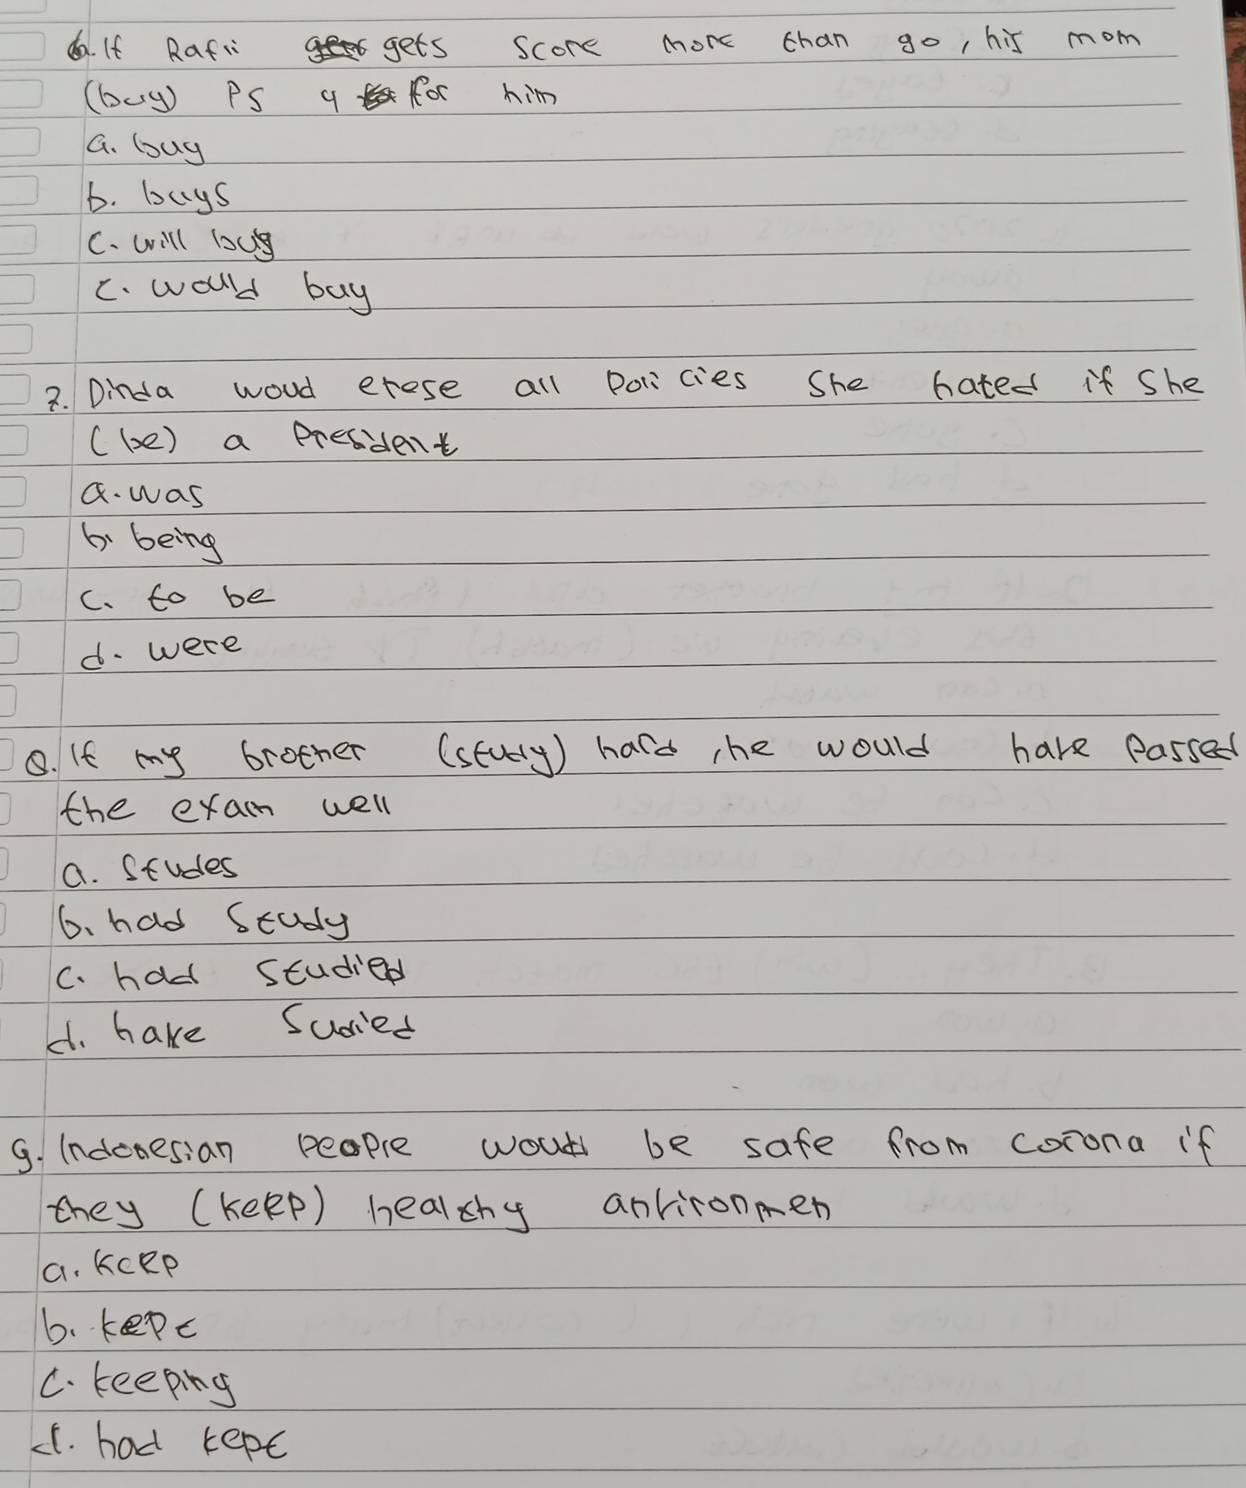 6. If Rafii gets score more than 90, his mom
(buy) PS 4 for him
a. buy
b. buys
c. will buy
c. would buy
7. Dinda woud erese all policies she hated if she
(be) a President
a. was
b. being
c. to be
d. were
8. If my brother (study) hard, he would have passed
the exam well
a. Studes
b. had Study
c. had studied
d. have Sudied
9. Indonesian people would be safe from corona if
they (keep) healthy anvironmen
a. Keep
b. kept
c. keeping
d. had kept